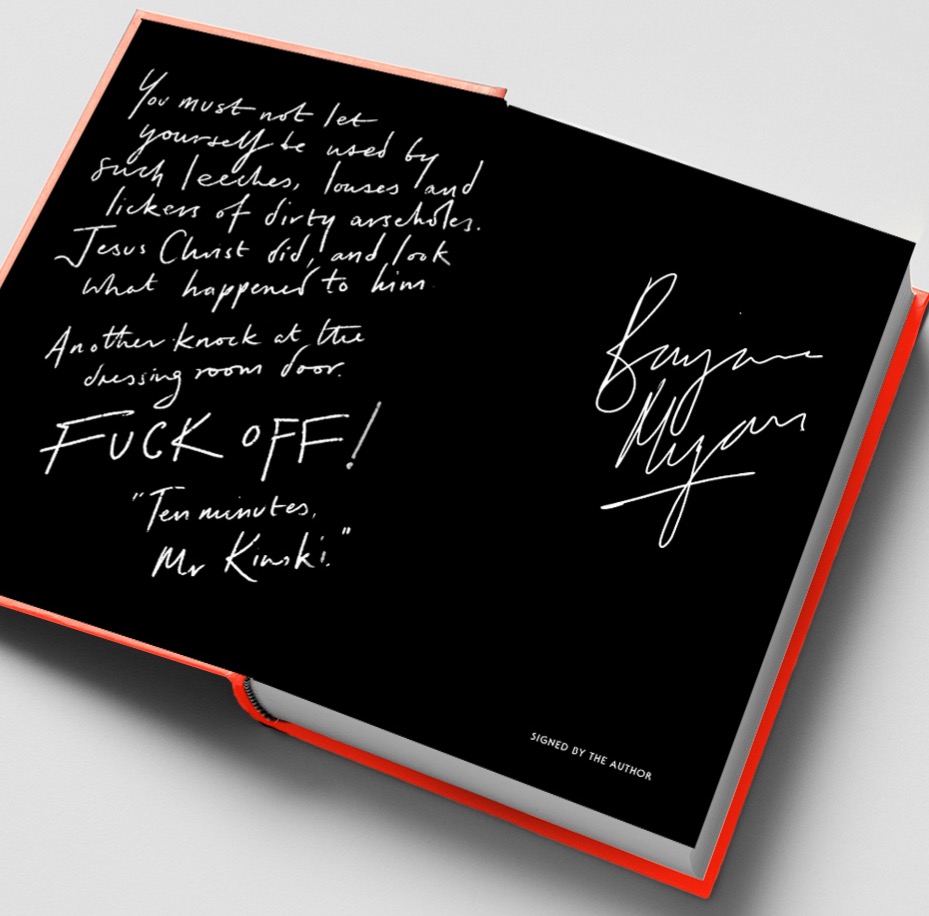 You must not let
yourself be used by
such leeches, louses and
lickers of dirty arseholes.
Jesus Christ did, and look
what happened to him.
Another knock at the
dressing room door.
FUCK OFF!
"Ten minutes,
Mr Kinski."
Benjamin
Myers
SIGNED BY THE AUTHOR